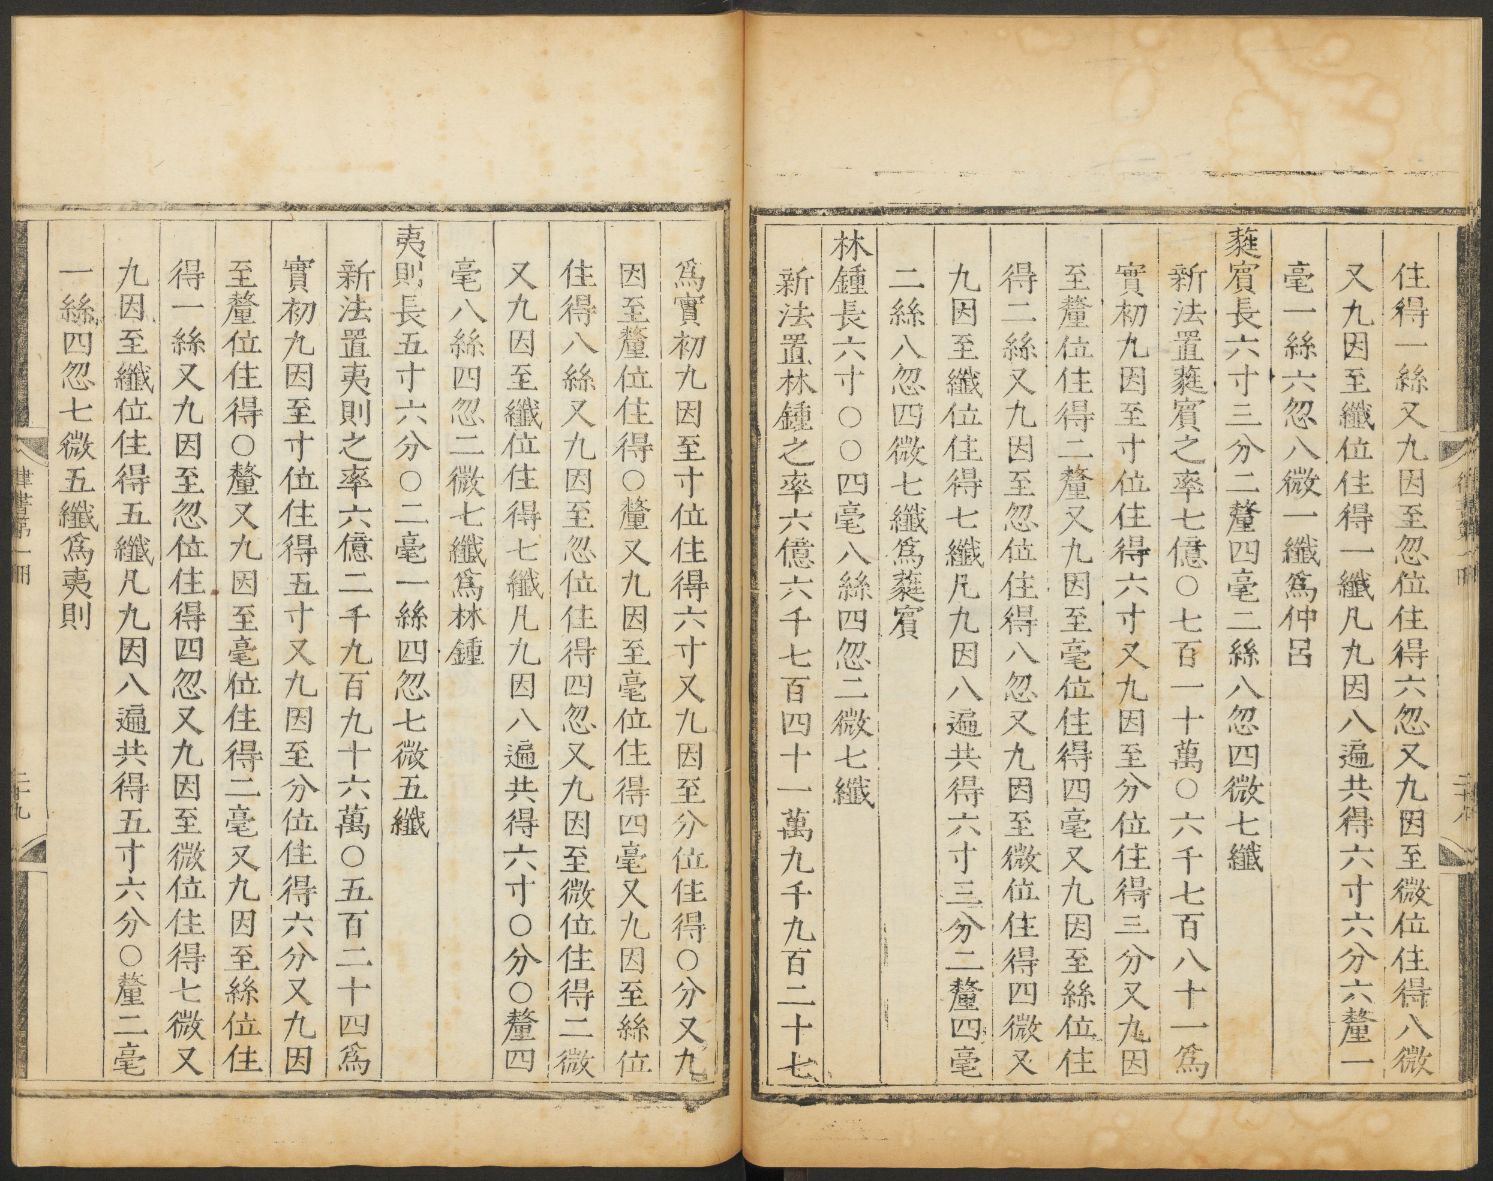 住得一絲又九因至忽位住得六忽又九因至微位住得八微
又九因至纖位住得一纖凡九因八遍共得六寸六分六釐一
毫一絲六忽八微一纖爲仲呂
蕤賓長六寸三分二釐四毫二絲八忽四微七纖
新法置蕤賓之率七億○七百一十萬○六千七百八十一爲
實初九因至寸位住得六寸又九因至分位住得三分又九因
至釐位住得二釐又九因至毫位住得四毫又九因至絲位住
得二絲又九因至忽位住得八忽又九因至微位住得四微又
九因至纖位住得七纖凡九因八遍共得六寸三分二釐四毫
二絲八忽四微七纖爲蕤賓
林鍾長六寸○○四毫八絲四忽二微七纖
新法置林鍾之率六億六千七百四十一萬九千九百二十七
爲實初九因至寸位住得六寸又九因至分位住得○分又九
因至釐位住得○釐又九因至毫位住得四毫又九因至絲位
住得八絲又九因至忽位住得四忽又九因至微位住得二微
又九因至纖位住得七纖凡九因八遍共得六寸○分○釐四
毫八絲四忽二微七纖爲林鍾
夷則長五寸六分○二毫一絲四忽七微五纖
新法置夷則之率六億二千九百九十六萬○五百二十四爲
實初九因至寸位住得五寸又九因至分位住得六分又九因
至釐位住得○釐又九因至毫位住得二毫又九因至絲位住
得一絲又九因至忽位住得四忽又九因至微位住得七微又
九因至纖位住得五纖凡九因八遍共得五寸六分○釐二毫
一絲四忽七微五纖爲夷則
律書第一冊
二十九